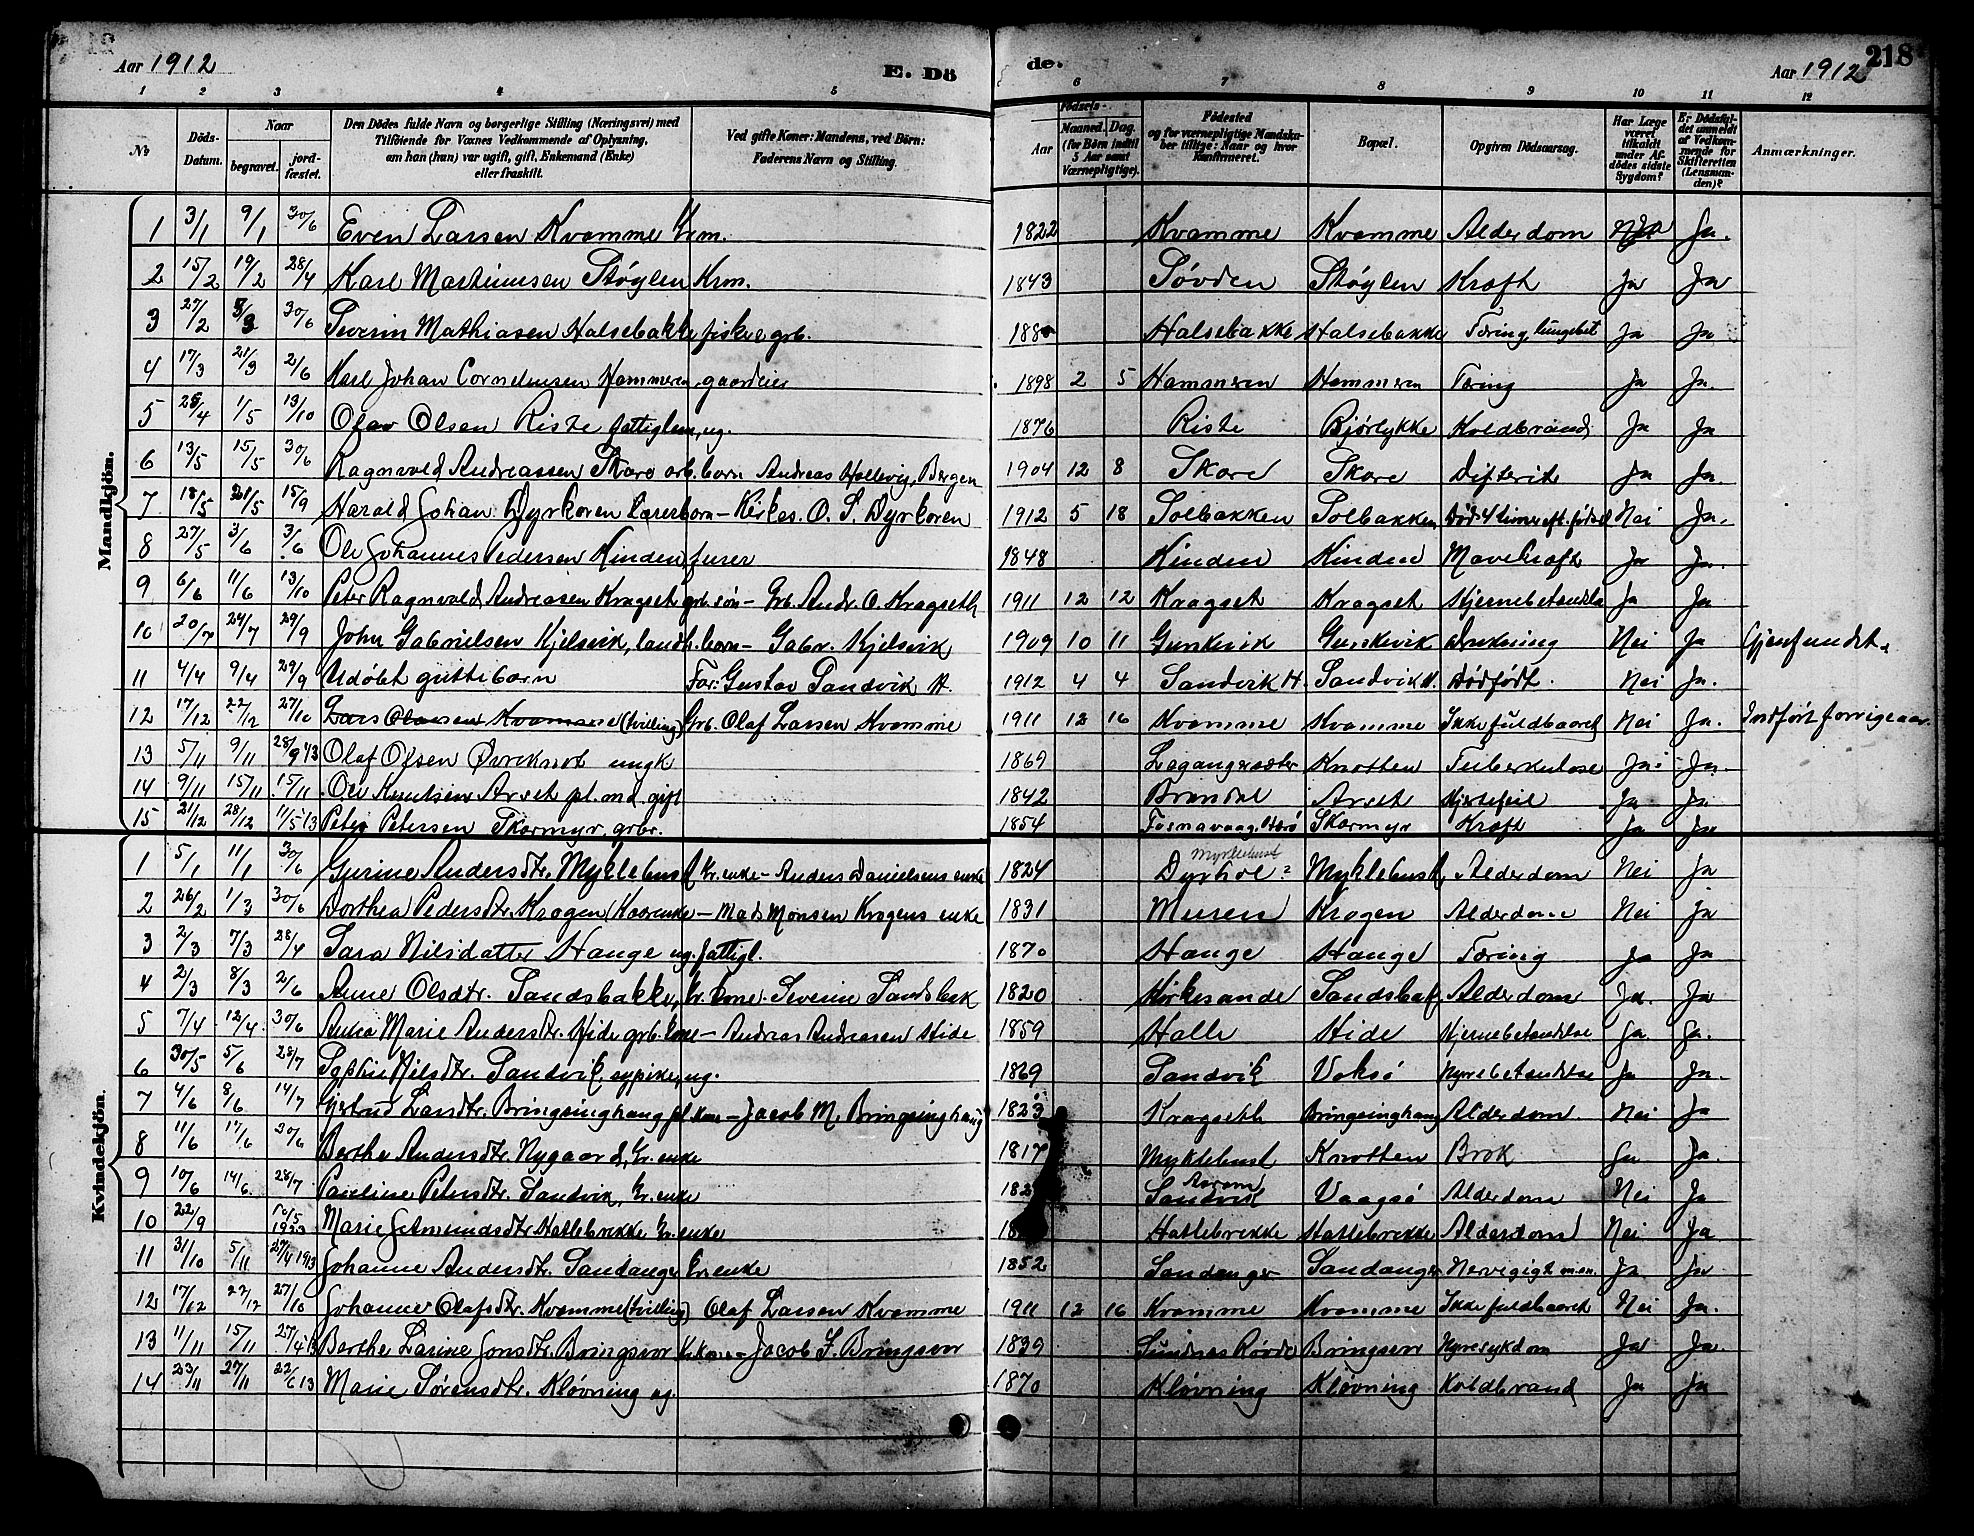 Aar 1912 E. Dö
de. 218
Aar 1912
1 2 3 4 5 6 7 8 9 10 11 12
No Döds-Datum. Naar begravet. jord-fæstet. Den Dödes fulde Navn og borgerlige Stilling (Næringsvei) med Tilföiende for Voxnes Vedkommende af Oplysning, om han (hun) var ugift, gift, Enkemand (Enke) eller fraskilt. Ved gifte Koner: Mandens, ved Börn: Faderens Navn og Stilling. Födsels- Aar Maaned. Dag. (for Börn indtil 5 Aar samt Værnepligtige). Födested og for værnepligtige Mandska-ber tillige: Naar og hvor konfirmeret. Bopæl. Opgiven Dödsaarsag. Har Læge været tilkaldt under Af-dödes sidste Sygdom? Er Dödsfal-det anmeldt af Vedkom-mende for Skifteretten (Lensman-den)? Anmærkninger.
Mandkjön.
1 3/1 9/1 30/6 Even Larsen Kvamme krm. 1822 Kvamme Kvamme Alderdom Ja.
2 15/2 19/2 28/4 Karl Martinusen Støylen Krm. 1843 Søvden Støylen Kræft Ja Ja
3 27/2 30/6 Severin Mathiasen Halsebakke fisker grb. Halsebakke Halsebakke Tæring, lungebet Ja Ja
4 17/3 21/3 2/6 Karl Johan Corneliusen Hammeren, gaardeier 1898 2 5 Hammeren Hammeren Tæring Ja Ja.
5 1/5 13/10 Olav Olsen Riste fattiglem, ug. 1876 Riste Bjørlykke Koldbrand Ja Ja
6 13/5 15/5 30/6 Ragnvald Andreassen Skare arb. barn Andreas Hallevig, Bergen 1904 12 8 Skare Skare Difterit Ja Ja.
7 18/5 21/5 15/9 Harald Johan Dyrkoren lærerbarn – Kirkes. O. S. Dyrkoren 1912 5 18 Solbakken Solbakken Død 4 timer eft. fødsel Nei Ja.
8 27/5 3/6 3/6 Ole Johannes Pedersen Kinden, furer 1848 Kinden Kinden Mavekræft Ja Ja.
9 6/6 11/6 13/10 Peter Ragnvald Andreasen Kragset grb. søn – Grb. Andr. O. Kragseth 1911 12 12 Kragset Kragset Hjernebetændelse Ja Ja
10 20/7 24/7 29/9 John Gabrielsen Kjelsvik, landh. barn – Gabr. Kjelsvik 1909 10 11 Gurskevik Gurskevik Drukning Nei Ja Gjenfundet.
11 4/4 9/4 29/9 Udøbt guttebarn Far: Gustav Sandvik H. 1912 4 4 Sandvik H. Sandvik H. Dødfødt. Nei Ja.
12 17/12 27/12 27/10 Lars Olavsen Kvamme (tvilling) Grb. Olaf Larsen Kvamme 1911 12 16 Kvamme Kvamme Ikke fuldbaaret Nei Ja. Indført forrige aar.
13 5/11 9/11 28/9 43 Olaf Olsen ungk 1869 Lagangersæter Knotten Tuberkulose Ja Ja.
14 9/11 15/11 15/11 Ole Knutsen Arset pl. md. gift 1842 Brandal Arset Hjertefeil Ja Ja
15 21/12 28/12 11/5 13 Peter Petersen Skarmyr, grbr. 1854 Fosnavaag, Herø Skarmyr Kræft Ja Ja
Kvindekjön.
1 5/1 11/1 30/6 Gurine Andersdtr. Myklebust kr. enke – Anders Danielsens enke 1824 Myklebust Dyrhol? Myklebust Alderdom Nei Ja
2 26/2 1/3 30/6 Dorthea Pedersdtr. Kragen kaarenke – Mads Monsen Kragens enke 1831 Muren Kragen Alderdom Nei Ja
3 2/3 7/3 28/4 Sara Nilsdatter Hauge ug. fattigl. 1870 Hauge Hauge Tæring Ja Ja
4 2/3 8/3 2/6 Anne Olsdtr. Sandsbakke, kr. kone. Severin Sandsbak 1820 Kirkesande Sandsbak Alderdom Ja. Ja
5 7/4 12/4 30/6 Anna Marie Andersdtr. Hide grb. kone – Andreas Andreasen Hide 1859 Halle Hide Hjernebetændelse Ja. Ja.
6 30/5 5/6 28/7 Sophie Nilsdtr. Sandvik sypike, ug. 1869 Sandvik Voksø Nyrebetændelse Ja Ja.
7 4/6 8/6 14/7 Gjertrud Larsdtr. Bringsinghaug pl. kone – Jacob M. Bringsinghaug 1823 Kragseth Bringsinghaug Alderdom Nei Ja
8 11/6 17/6 30/6 Berthe Andersdtr. Nygaard, kr. enke 1817 Myklebust Knotten Brok Ja Ja.
9 10/6 14/6. 28/7 Pauline Petersdtr. Sandvik, kr. enke Sandvik Vaagsø Alderdom Nei Ja
10 22/9 1923 Marie Amundsdtr. Hatlebrekke kr. enke Hatlebrekke Hatlebrekke Alderdom Nei Ja
11 31/10 5/11 27/4 1913 Johanne Andersdtr. Sandanger kr. enke 1852 Sandanger Sandanger Nervegigt m. m. Ja. Ja
12 17/12 27/12 27/10 Johanne Olafsdtr. Kvamme (tvilling) Olaf Larsen Kvamme 1911 12 16 Kvamme Kvamme Ikke fuldbaaret Nei Ja.
13 11/11 15/11 27/4 13 Berthe Larine Jonsdtr. Bringsvor kr. kone – Jacob J. Bringsvor 1839 Sundnes Røvde Bringsvor Nyresykdom Ja Ja.
14 23/11 27/11 22/6 13 Marie Sørensdtr. Kløvning ug. 1870 Kløvning Kløvning Koldbrand Ja Ja